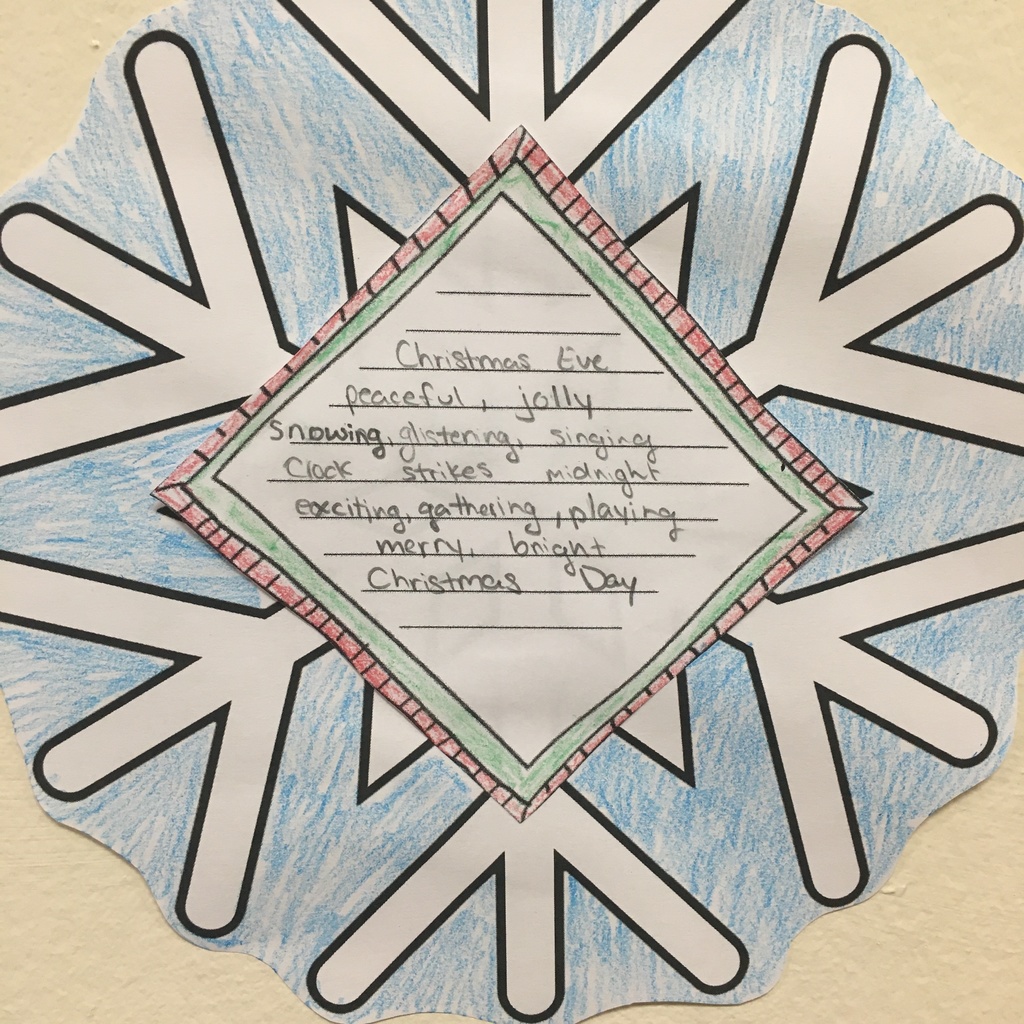 Christmas Eve
peaceful, jolly
Snowing, glistening, singing
Clock strikes midnight
exciting, gathering, playing
merry, bright
Christmas Day